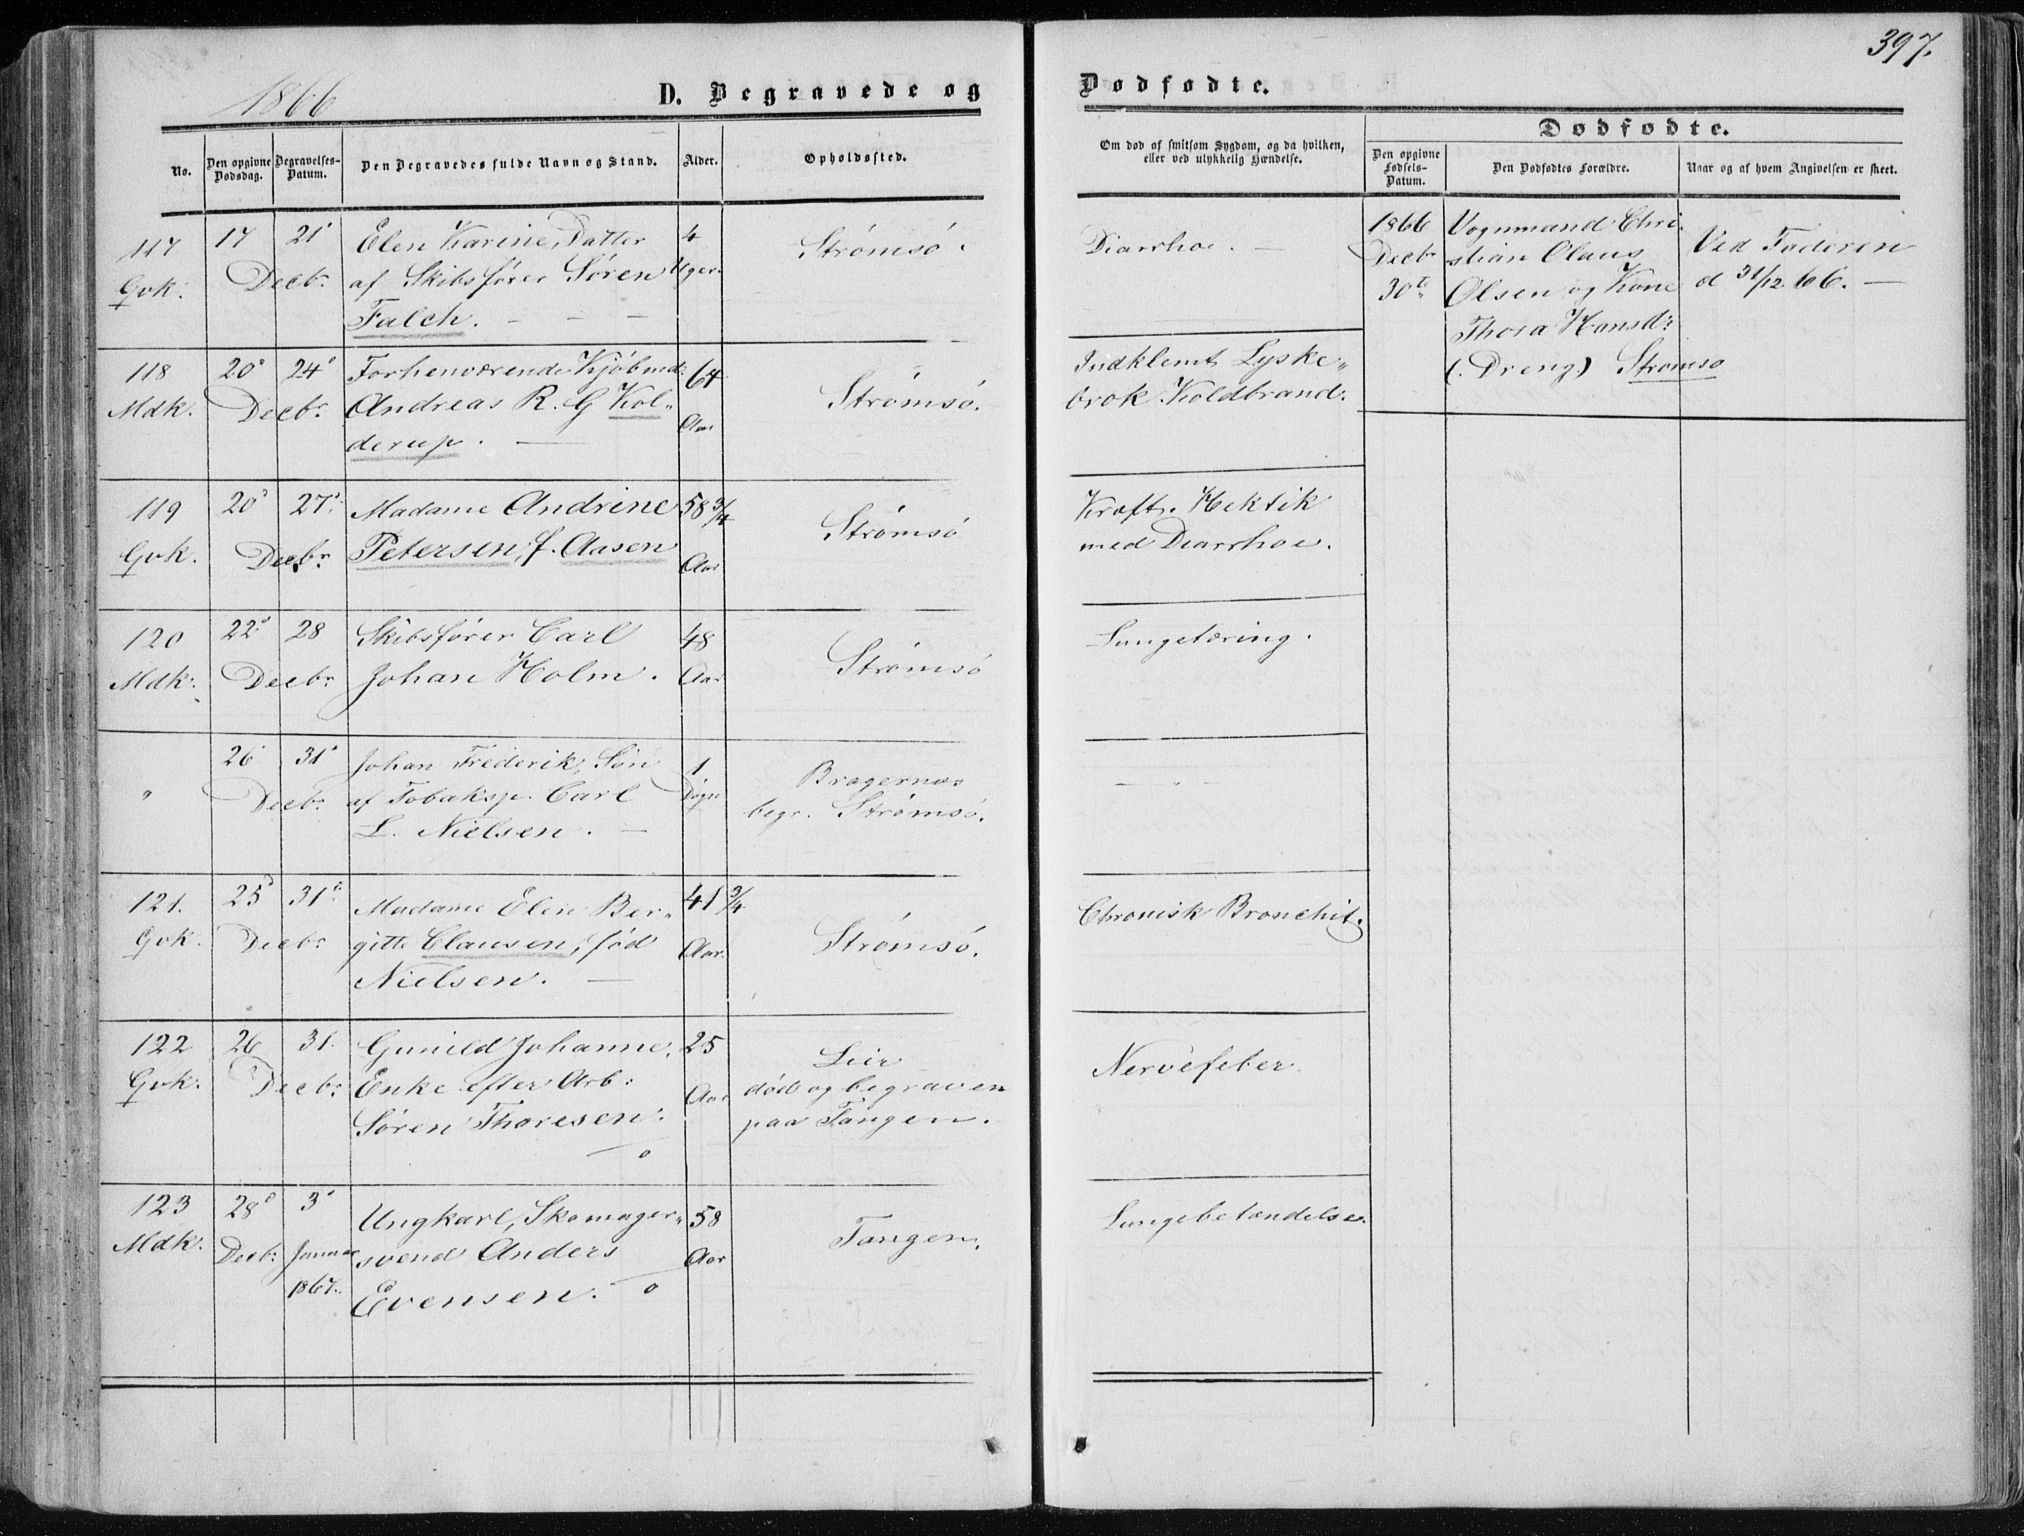 397.
1866
D. Begravede og
Dødfødte.
No.
Den opgivne Dødsdag.
Begravelses-Datum.
Den Begravedes fulde Navn og Stand.
Alder.
Opholdssted.
Om død af smitsom Sygdom, og da hvilken, eller ved ulykkelig Hændelse.
Dødfødte.
Den opgivne Fødsels-Datum.
Den Dødfødtes Forældre.
Naar og af hvem Angivelsen er skeet.
117
Qvk.
17 21
Decbr.
Elen Karine, Datter
af Skibsfører Søren
Falch.
4
Uger
Strømsö.
Diarrhoe.
1866
Decbr
30te
Vognmand Chri-
stian Olaus
Olsen og Kone
Thora Hansd:
(: Dreng) Strömsö
Ved Faderen
d 31/12 66.
118
Mdk.
20 24
Decbr.
Forhenværende Kjöbmd:
Andreas R. G Kol„
derup.
64
Aar
Strömsö.
Indklemt Lyske„
brok Koldbrand.
119
Qvk.
20 27
Decbr.
Madame Andrine
Petersen, f. Aasen
58 3/4
Aar
Strömsö
Kraft. Hektik
med Diarrhoe.
120
Mdk:
22 28
Decbr.
Skibsfører Carl
Johan Holm.
48
Aar
Strömsö
Lungetæring.
"
26 31
Decbr.
Johan Frederik, Søn
af Tobaksp. Carl
L. Nielsen.
1
Døgn
Bragernæs
begr. Strømsö.
"
121.
Qvk.
25 31
Decbr.
Madame Elen Ber„
gitte Clausen, fød
Nielsen.
41 3/4
Aar.
Strömsö.
Chronisk Bronchit.
122
Qvk.
26 31.
Decbr.
Gunild Johanne,
Enke efter Arb:
Søren Thoresen.
25
Aar
Lier
død og begraven
paa Tangen.
Nervefeber
123
Mdk.
28 3
Decbr. Januar
1867.
Ungkarl, Skomager„
svend Anders
Evensen.
58
Aar
Tangen.
Lungebetændelse.